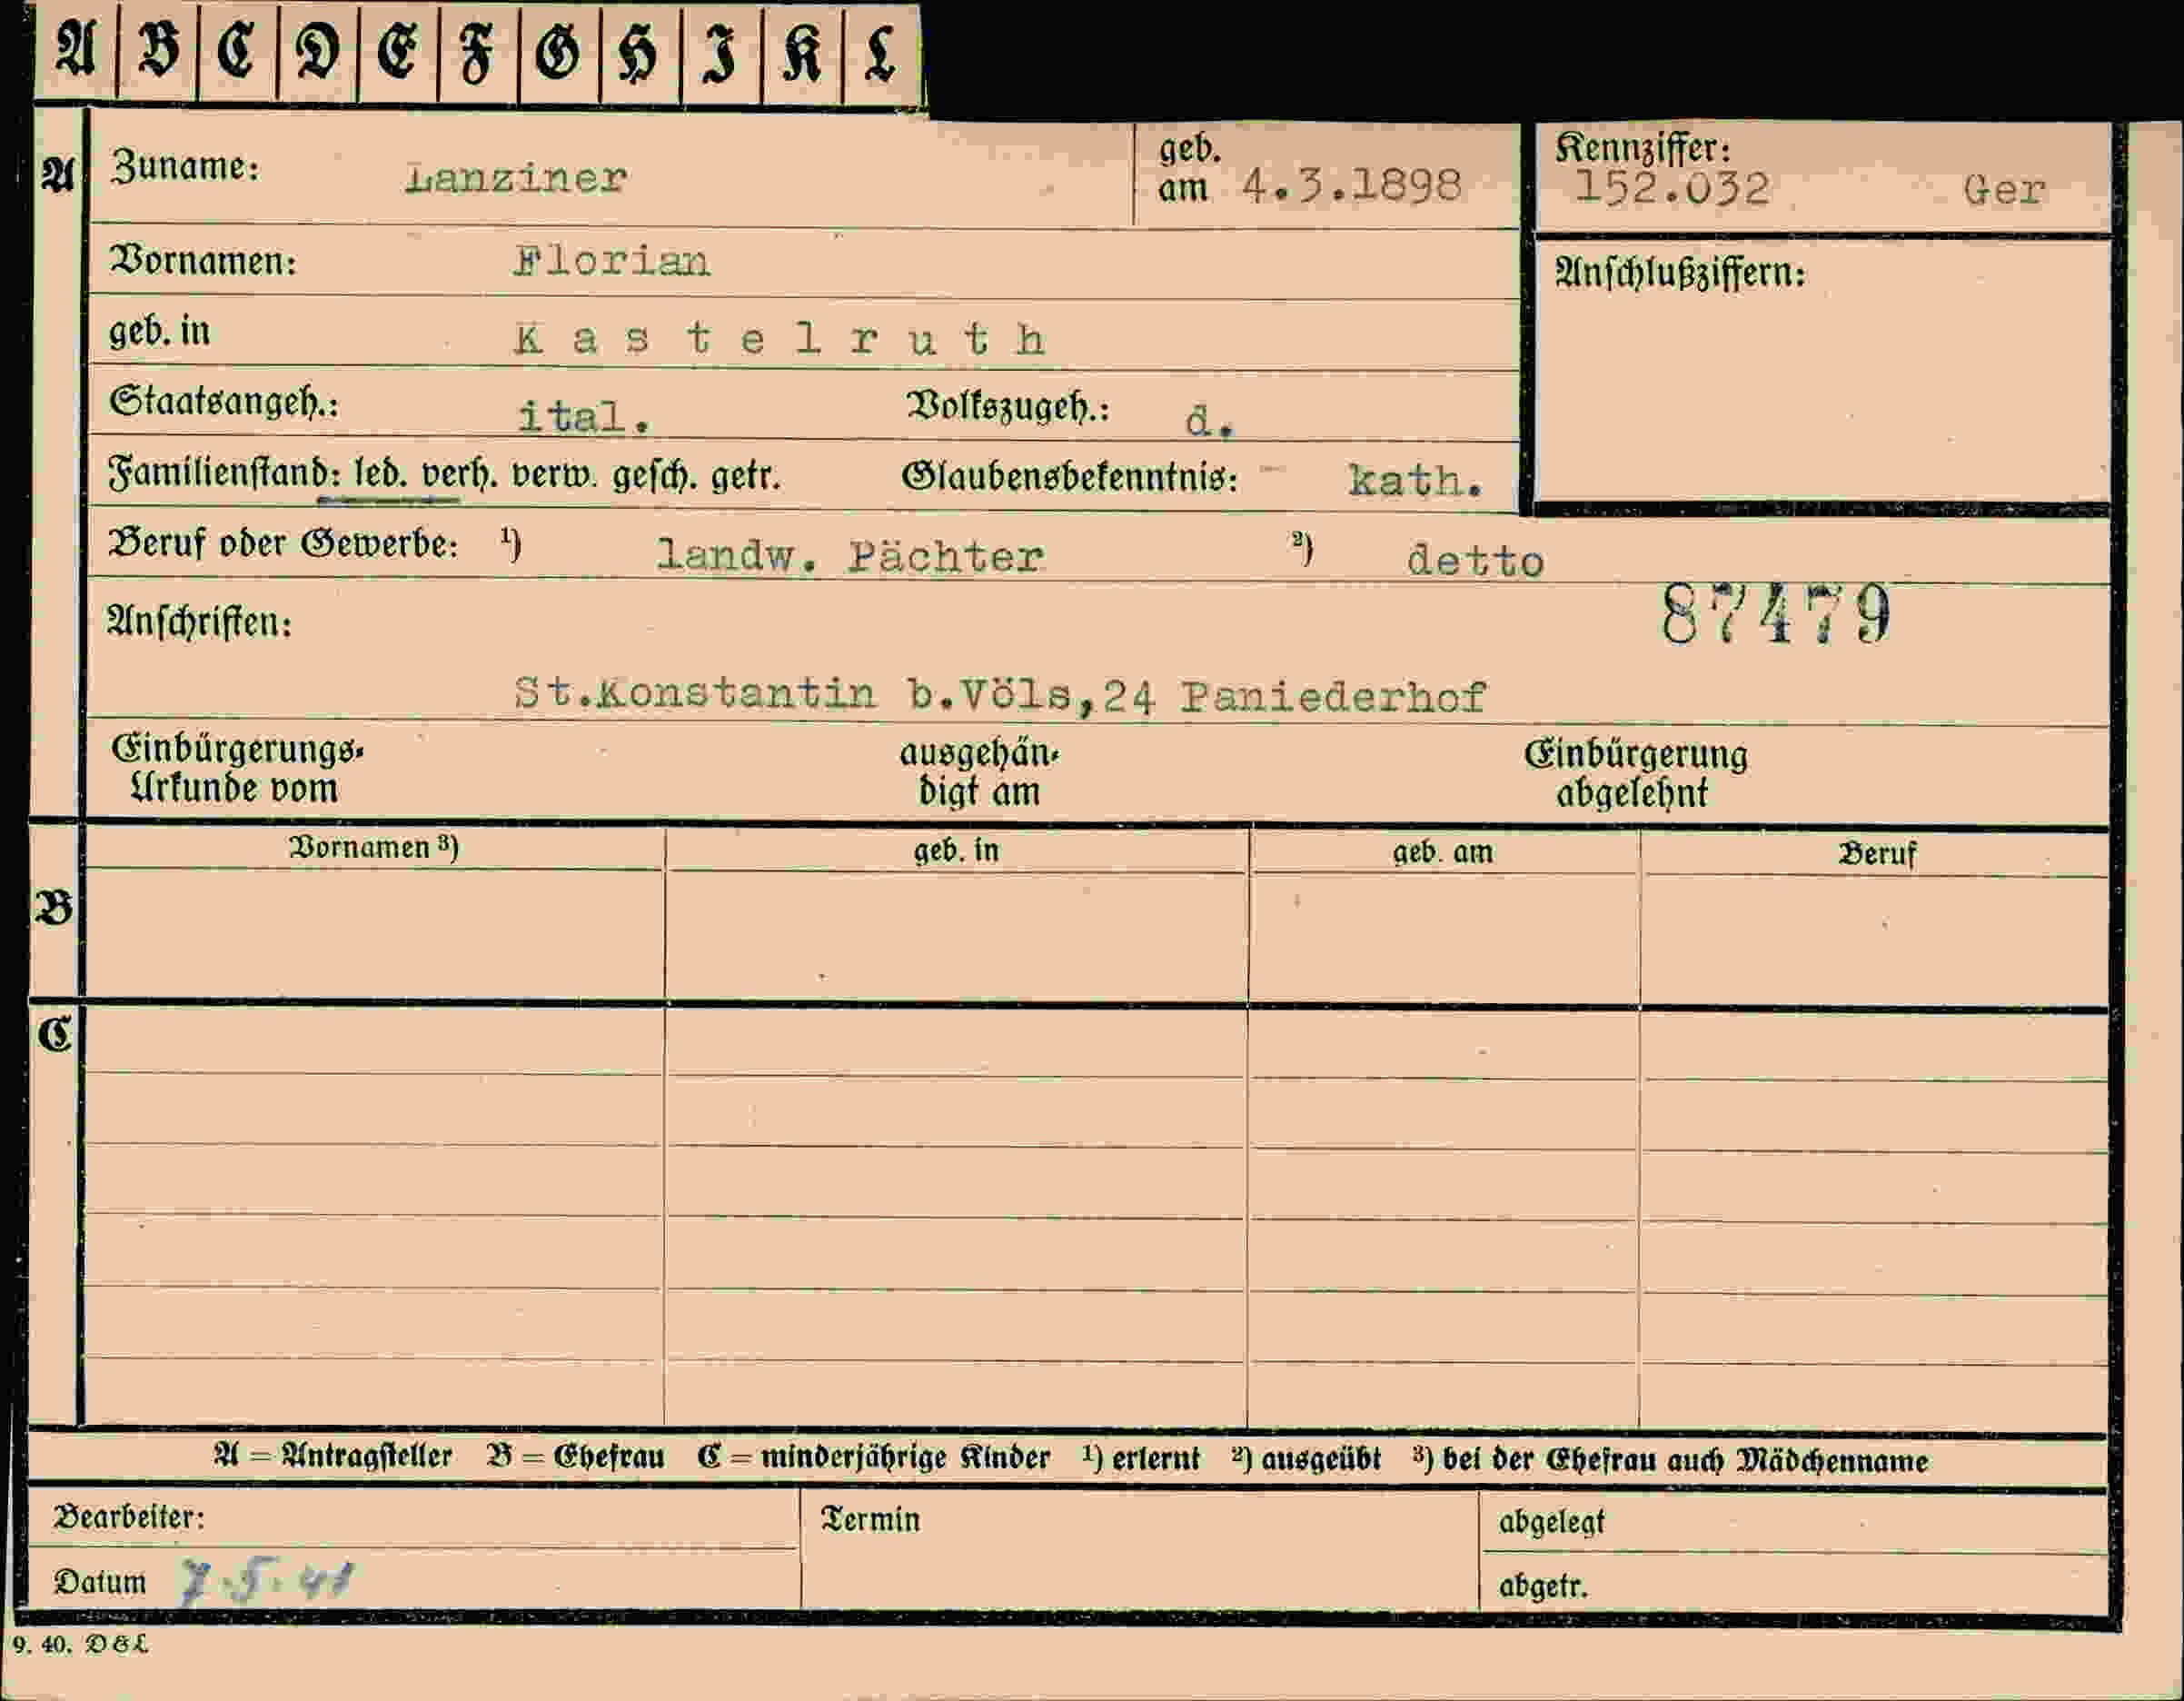 A B C D E F G H I K L
A Zuname: Lanziner geb. am 4.3.1898 Kennziffer: 152.032 Ger
Vornamen: Florian Anschlußziffern:
geb. in Kastelruth
Staatsangeh.: ital. Volkszugeh.: d.
Familienstand: led. verh. verw. gesch. getr. Glaubensbekenntnis: kath.
Beruf oder Gewerbe: ¹) landw. Pächter ²) detto
Anschriften: 87479
St.Konstantin b.Völs,24 Paniederhof
Einbürgerungs- ausgehän- Einbürgerung
Urkunde vom digt am abgelehnt
Vornamen ³) geb. in geb. am Beruf
B
C
A = Antragsteller B = Ehefrau C = minderjährige Kinder ¹) erlernt ²) ausgeübt ³) bei der Ehefrau auch Mädchenname
Bearbeiter: Termin abgelegt
Datum 7.5.41 abgetr.
9. 40. D&L